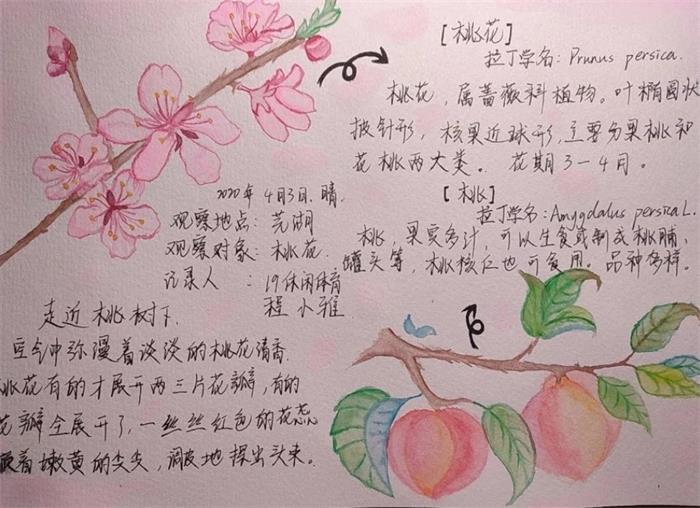 [桃花]
拉丁学名:Prunus persica.
桃花,属蔷薇科植物。叶椭圆状
披针形,核果近球形,主要分果桃和
花桃两大类。 花期3-4月。
[桃]
拉丁学名:Amygdalus persica L.
桃,果实多汁,可以生食或制成桃脯,
罐头等,桃核仁也可食用。品种多样。
2020年 4月3日.晴.
观察地点:芜湖
观察对象:桃花.
记录人 :19休闲体育
程小雅
走近桃树下.
空气中弥漫着淡淡的桃花清香.
桃花有的才展开两三片花瓣,有的
花瓣全展开了,一丝丝红色的花蕊
顶着嫩黄的尖尖,调皮地探出头来。